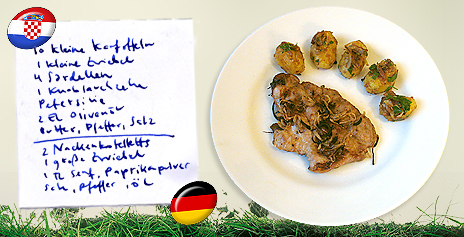 10 kleine Kartoffeln
1 kleine Zwiebel
4 Sardellen
1 Knoblauchzehe
Petersilie
2 EL Olivenöl
Butter, Pfeffer, Salz
2 Nackenkoteletts
1 große Zwiebel
1 TL Senf, Paprikapulver
Salz, Pfeffer, Öl